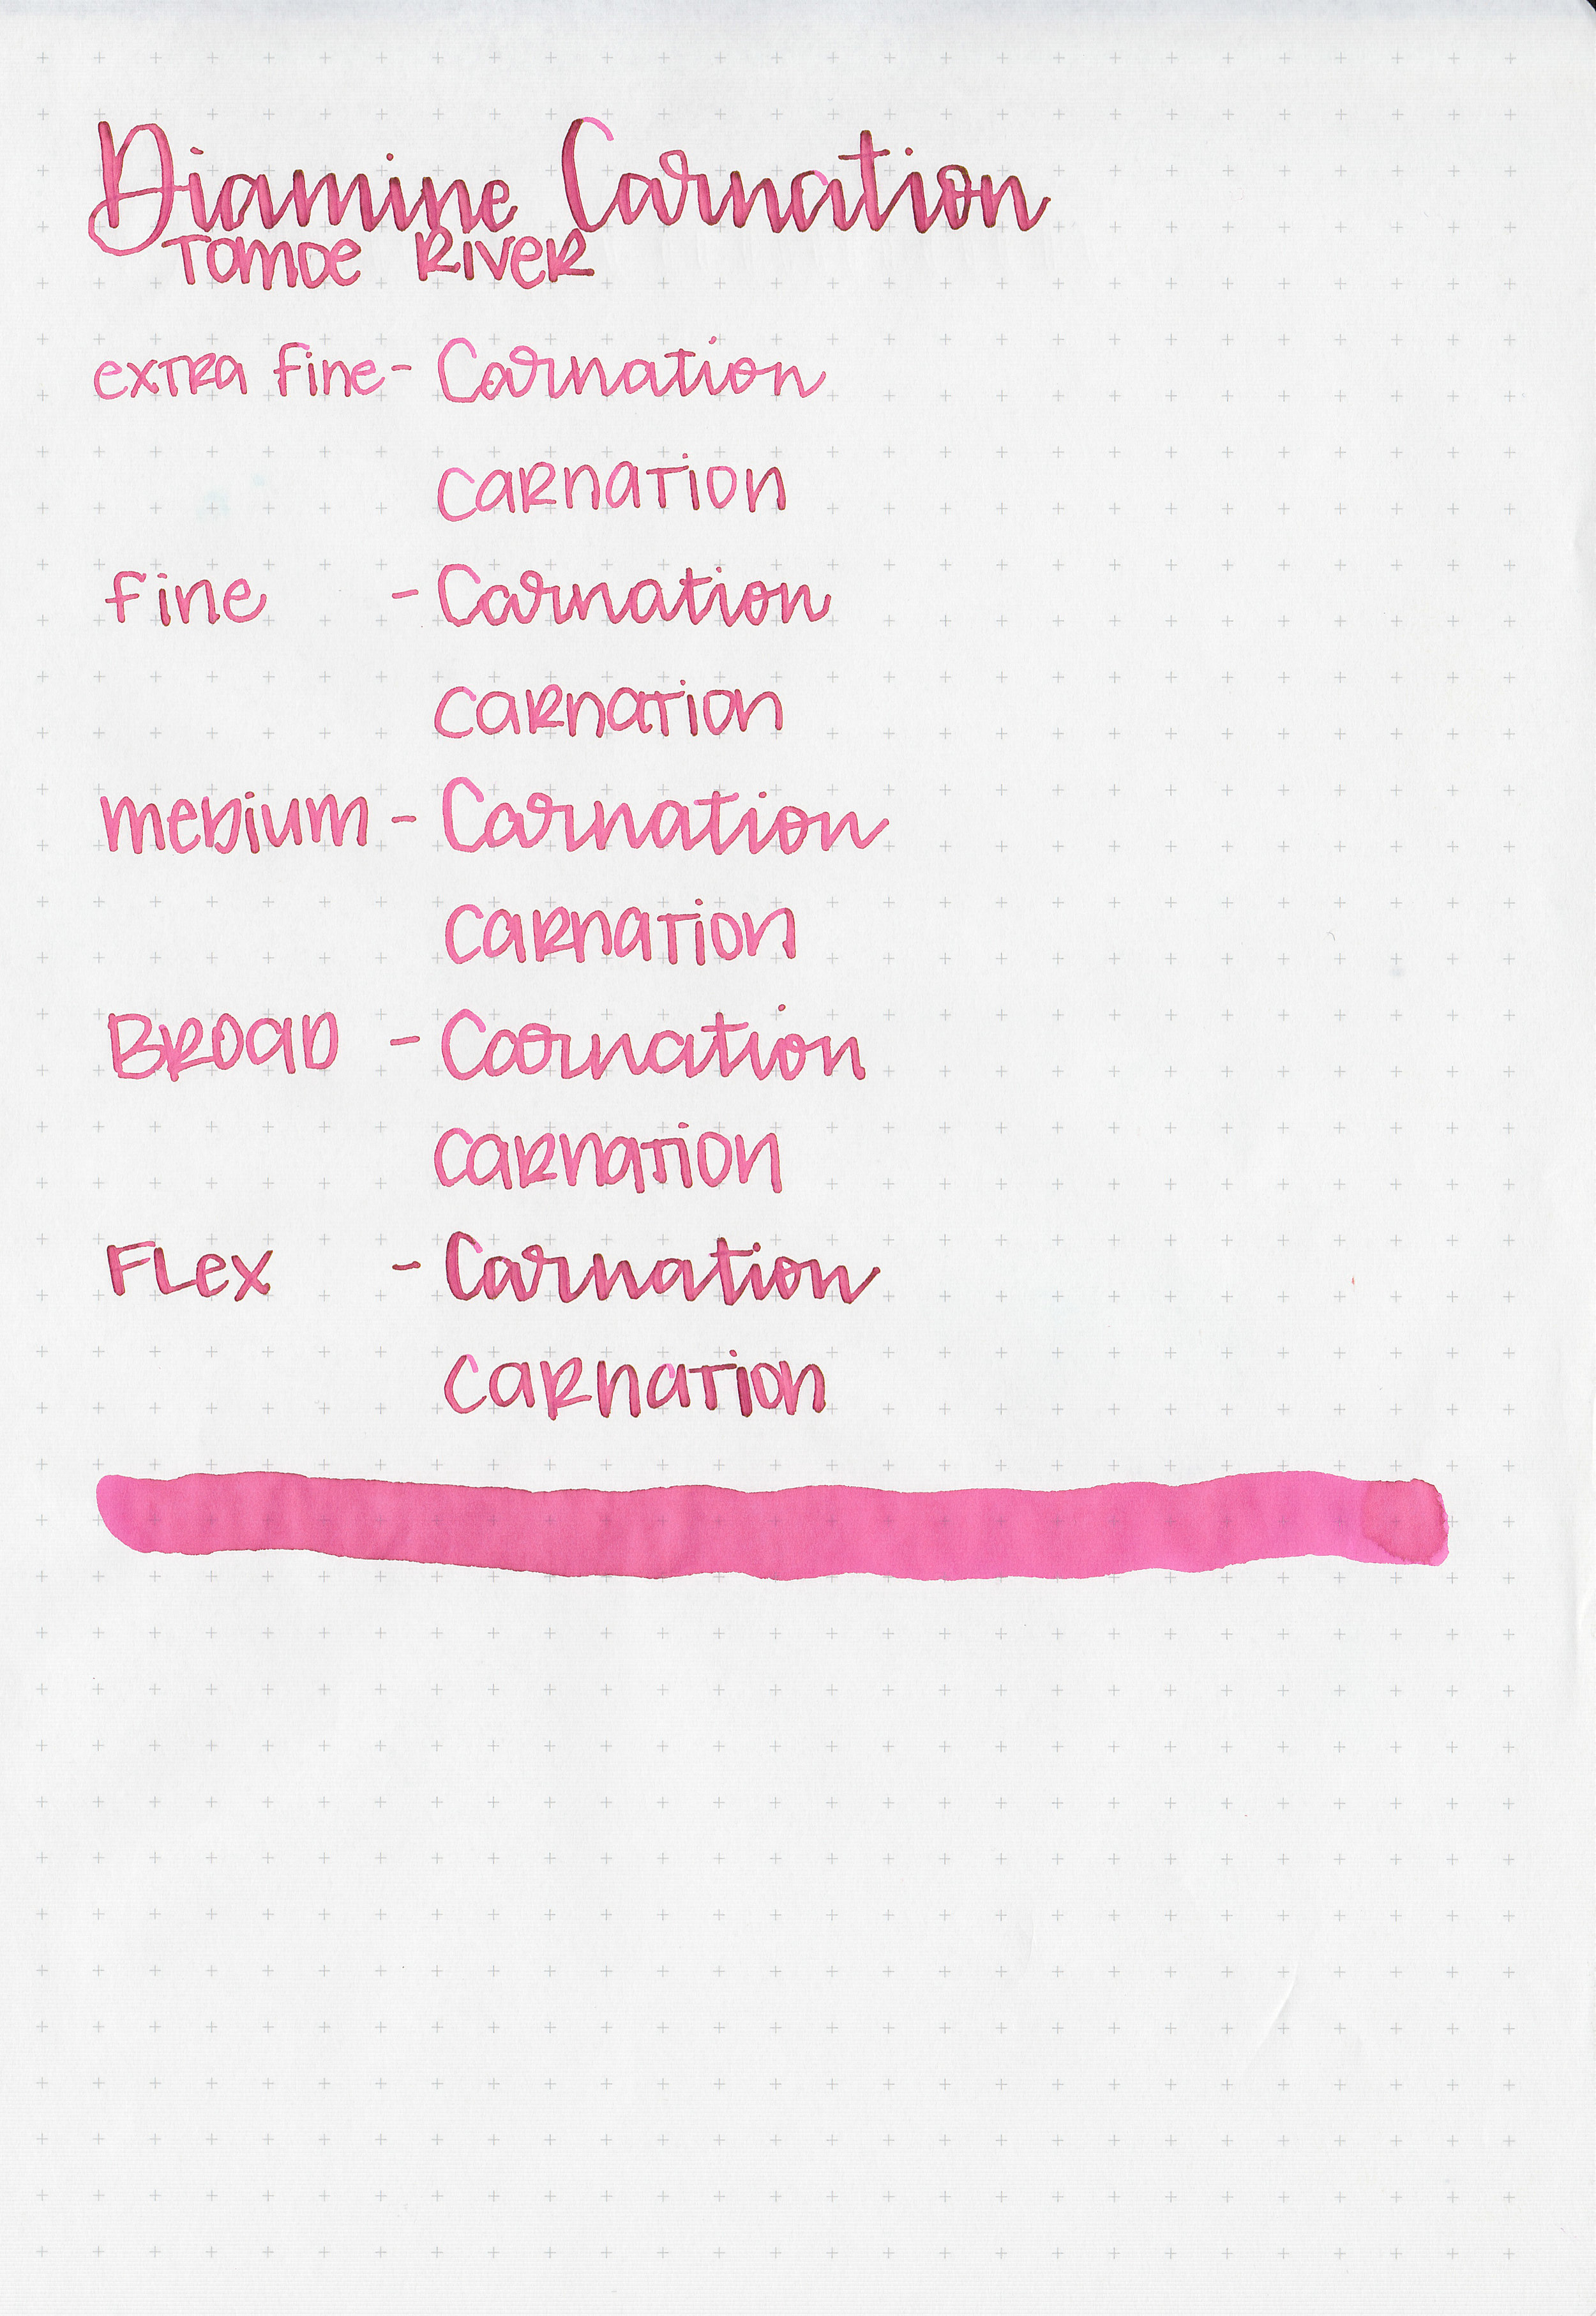 Diamine Carnation
Tomoe River
extra fine - Carnation
carnation
fine - Carnation
carnation
medium - Carnation
carnation
Broad - Carnation
carnation
Flex - Carnation
carnation